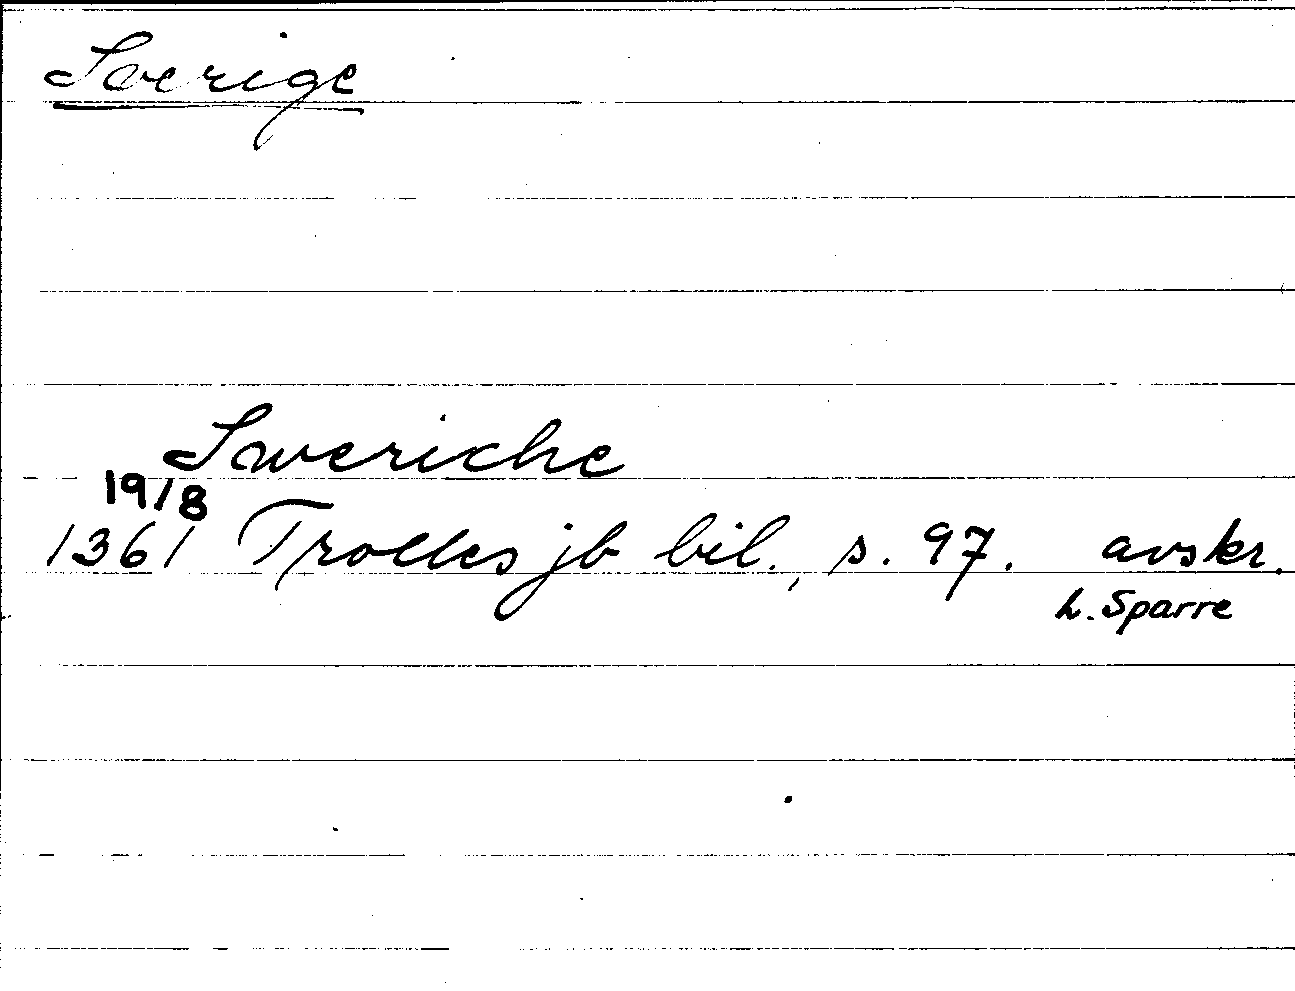 Sverige
Sweriche
19/8
1361 Trolles jb bil., s. 97. avskr.
L. Sparre